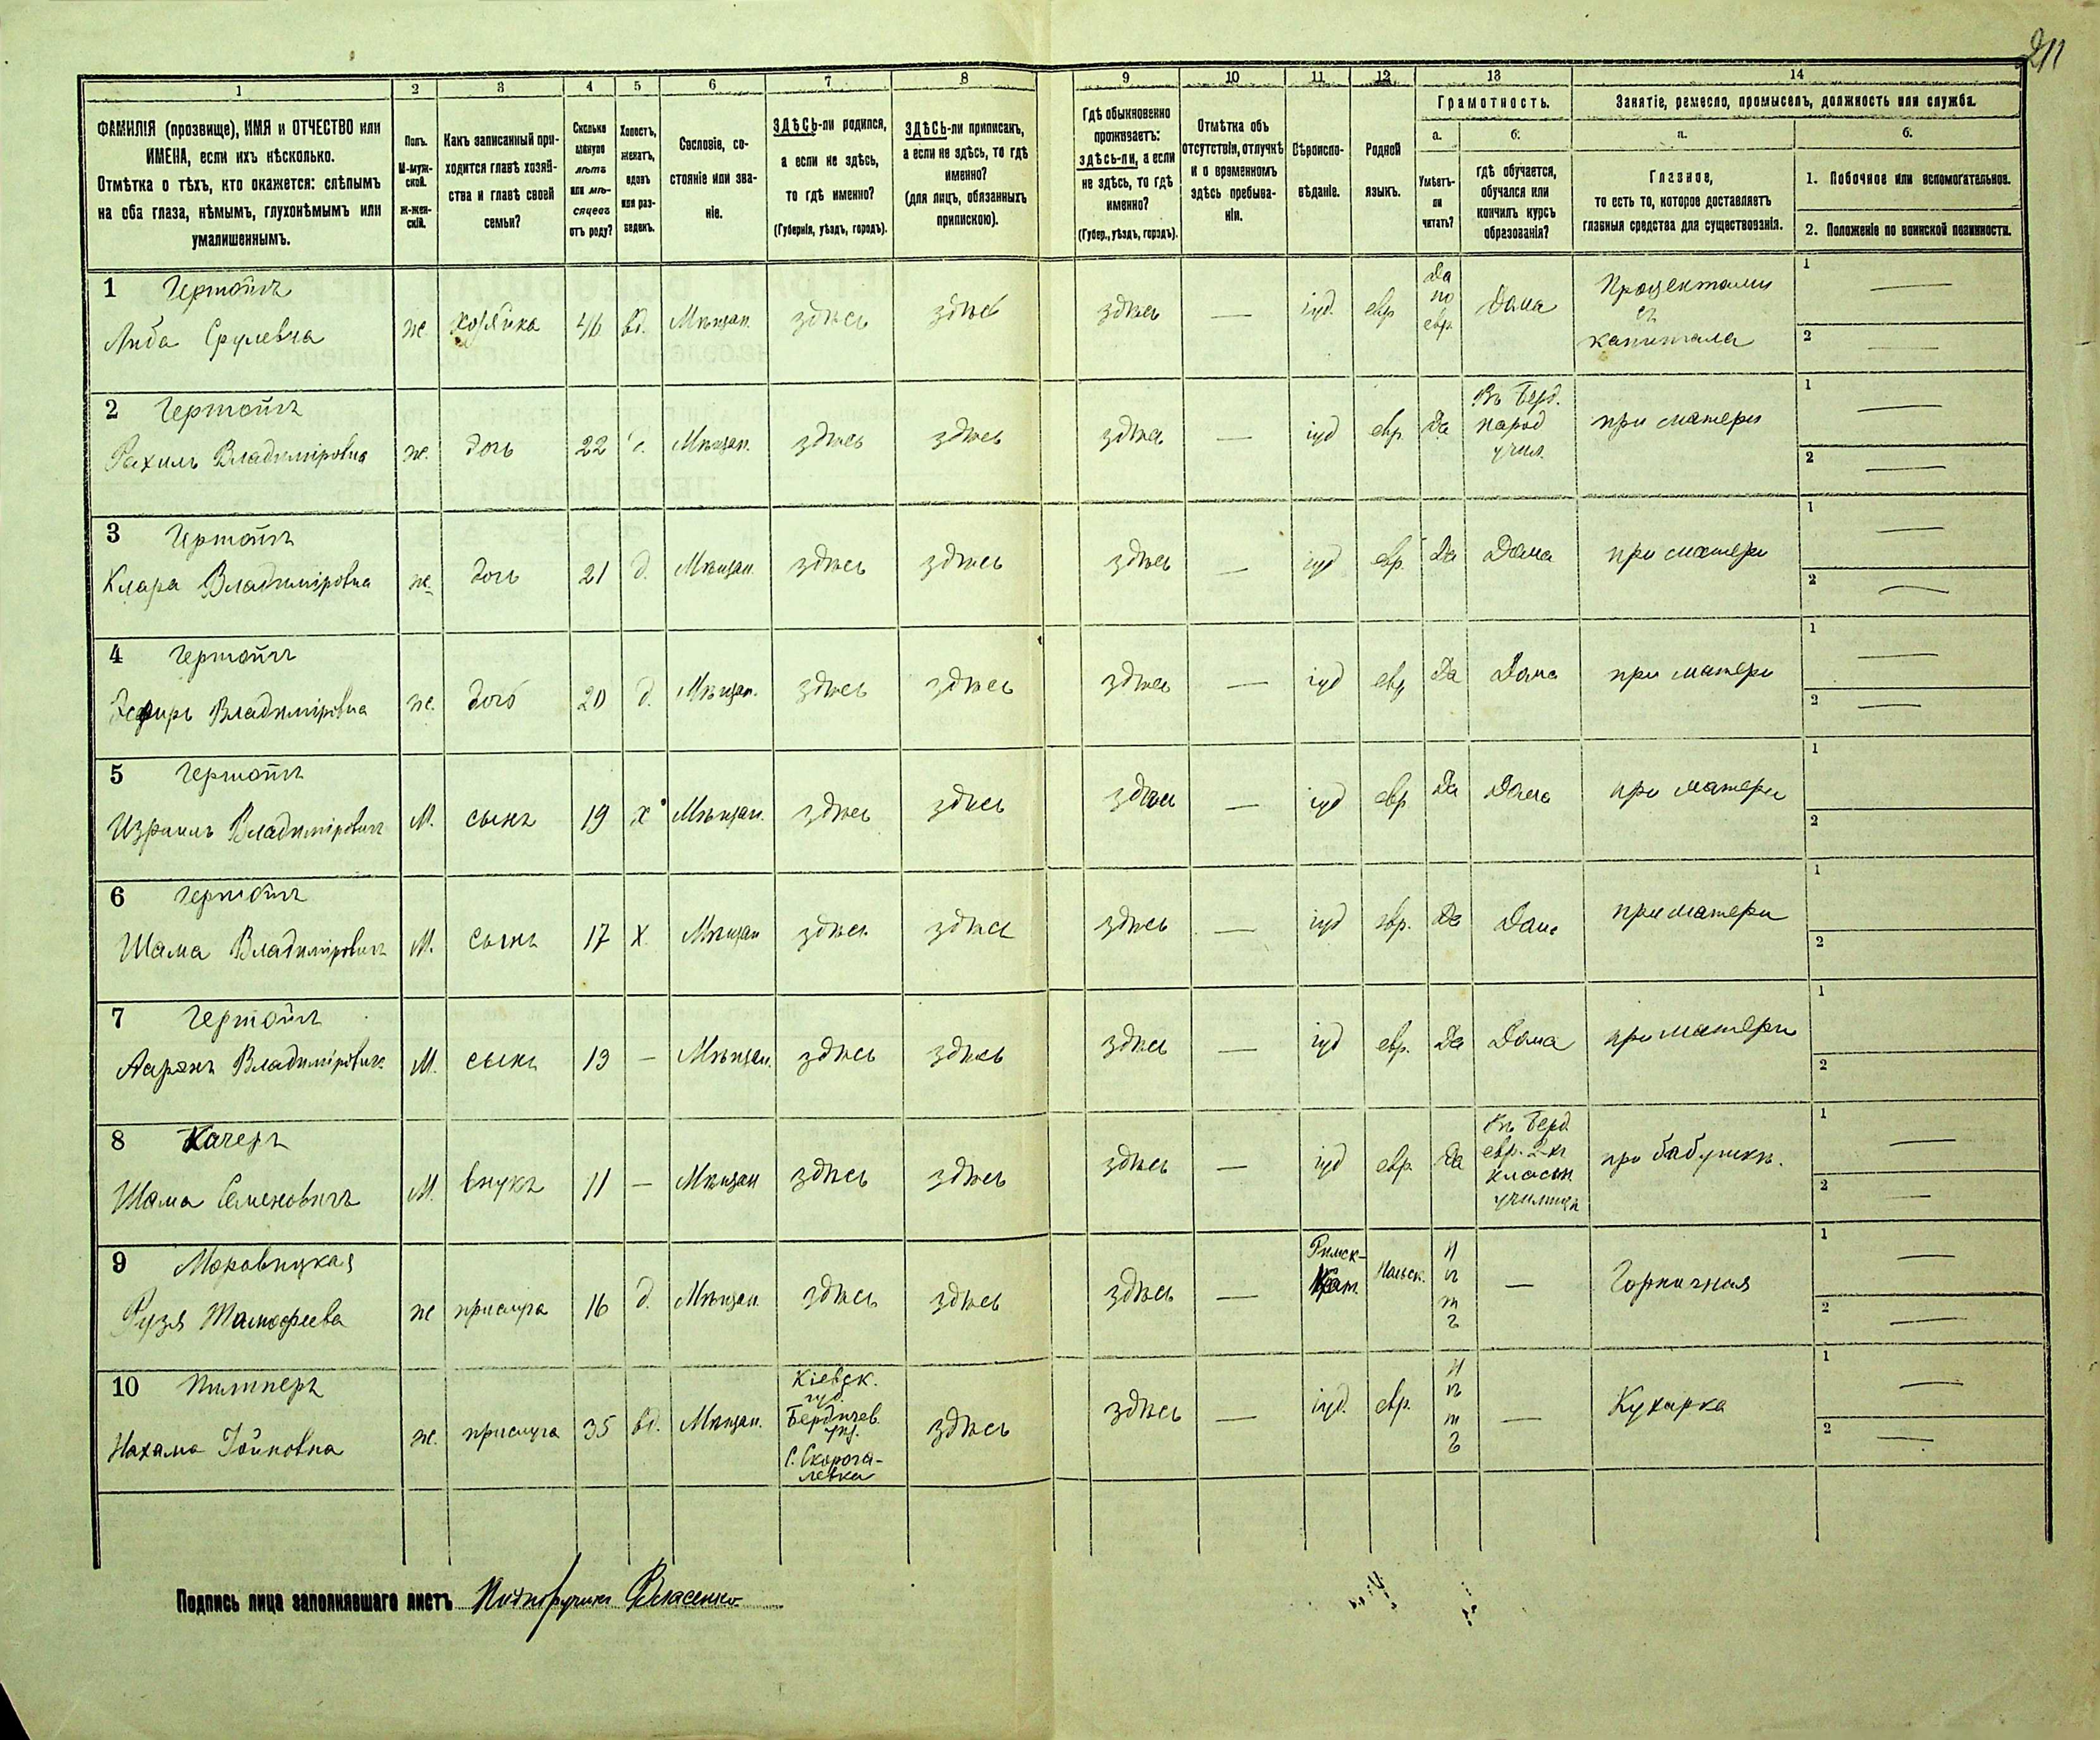 211
1 2 3 4 5 6 7 8 9 10 11 12 13 14
ФАМИЛІЯ (прозвище), ИМЯ и ОТЧЕСТВО или
ИМЕНА, если ихъ нѣсколько.
Отмѣтка о тѣхъ, кто окажется: слѣпымъ
на оба глаза, нѣмымъ, глухонѣмымъ или
умалишеннымъ.
Полъ.
М-муж-
ской.
Ж-жен-
скій.
Какъ записанный при-
ходится главѣ хозяй-
ства и главѣ своей
семьи?
Сколько
минуло
лѣтъ
или мѣ-
сяцевъ
отъ роду?
Холостъ,
женатъ,
вдовъ
или раз-
веденъ.
Сословіе, со-
стояніе или зва-
ніе.
ЗДѢСЬ-ли родился,
а если не здѣсь,
то гдѣ именно?
(Губернія, уѣздъ, городъ).
ЗДѢСЬ-ли приписанъ,
а если не здѣсь, то гдѣ
именно?
(для лицъ, обязанныхъ
припискою).
Гдѣ обыкновенно
проживаетъ:
здѣсь-ли, а если
не здѣсь, то гдѣ
именно?
(Губер., уѣздъ, городъ).
Отмѣтка объ
отсутствіи, отлучкѣ
и о временномъ
здѣсь пребыва-
ніи.
Вѣроиспо-
вѣданіе.
Родной
языкъ.
Грамотность.
а.
Умѣетъ-
ли
читать?
б.
гдѣ обучается,
обучался или
кончилъ курсъ
образованія?
Занятіе, ремесло, промыселъ, должность или служба.
а.
Главное,
то есть то, которое доставляетъ
главныя средства для существованія.
б.
1. Побочное или вспомогательное.
2. Положеніе по воинской повинности.
1 Либа Срулевна ж. хозяйка 46 вд. Мѣщан. здѣсь здѣсь здѣсь — іуд. евр. Да по евр. Дома Процентами съ капитала 1 — 2 —
2 Рахиль Владиміровна ж. дочь 22 Мѣщан. здѣсь здѣсь здѣсь — іуд евр. Да Въ Берд. народ учил. при матери 1 — 2 —
3 Клара Владиміровна ж. дочь 21 д. Мѣщан. здѣсь здѣсь здѣсь — іуд евр. Да Дома при матери 1 — 2 —
4 Эсфирь Владиміровна ж. дочь 20 д. Мѣщан. здѣсь здѣсь здѣсь — іуд евр Да Дома при матери 1 — 2 —
5 Израиль Владиміровичъ М. сынъ 19 х Мѣщан. здѣсь здѣсь здѣсь — іуд евр Да Дома при матери 1 2
6 Шама Владиміровичъ М. сынъ 17 х. Мѣщан здѣсь здѣсь здѣсь — іуд евр. Да Дома при матери 1 2
7 Ааронъ Владиміровичъ М. сынъ 13 — Мѣщан. здѣсь здѣсь здѣсь — іуд евр. Да Дома при матери 1 2
8 Качеръ
Шама Семеновичъ М. внукъ 11 — Мѣщан здѣсь здѣсь здѣсь — іуд евр. Да Въ Берд. евр. 2-хъ класн училищѣ при бабушкѣ. 1 — 2 —
9 Моравицкая
Рузя Тимофеева ж прислуга 16 д. Мѣщан. здѣсь здѣсь здѣсь — Римск-Кат. Польск. нѣтъ — Горничная 1 — 2 —
10
Нахама Іойновна ж. прислуга 35 вд. Мѣщан. Кіевск. губ. Бердичев. уѣз. С. Скорога-левка здѣсь здѣсь — іуд. евр. нѣтъ — Кухарка 1 — 2 —
Подпись лица заполнявшаго листъ Подпоручикъ Власенко